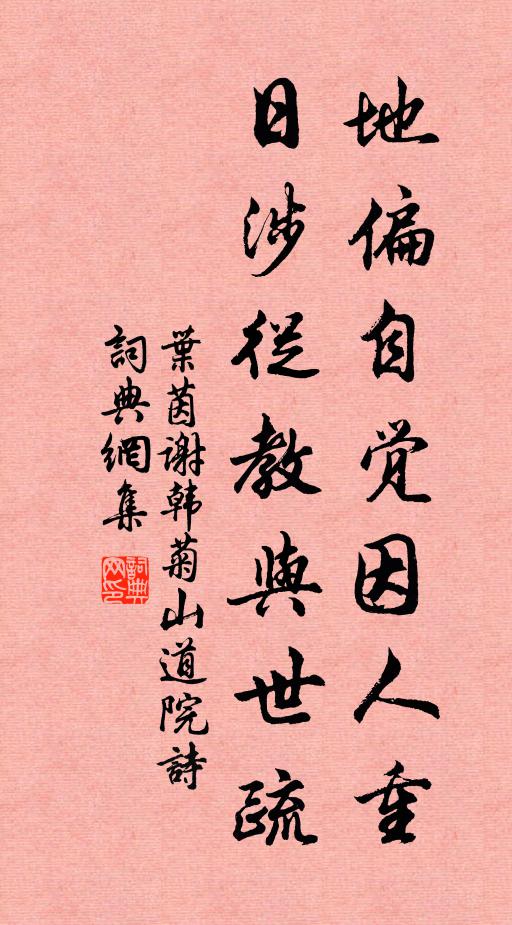 地偏自觉因人重
日涉從教與世疏
葉茵谢韩菊山道院詩
詞典網集
詞典网印